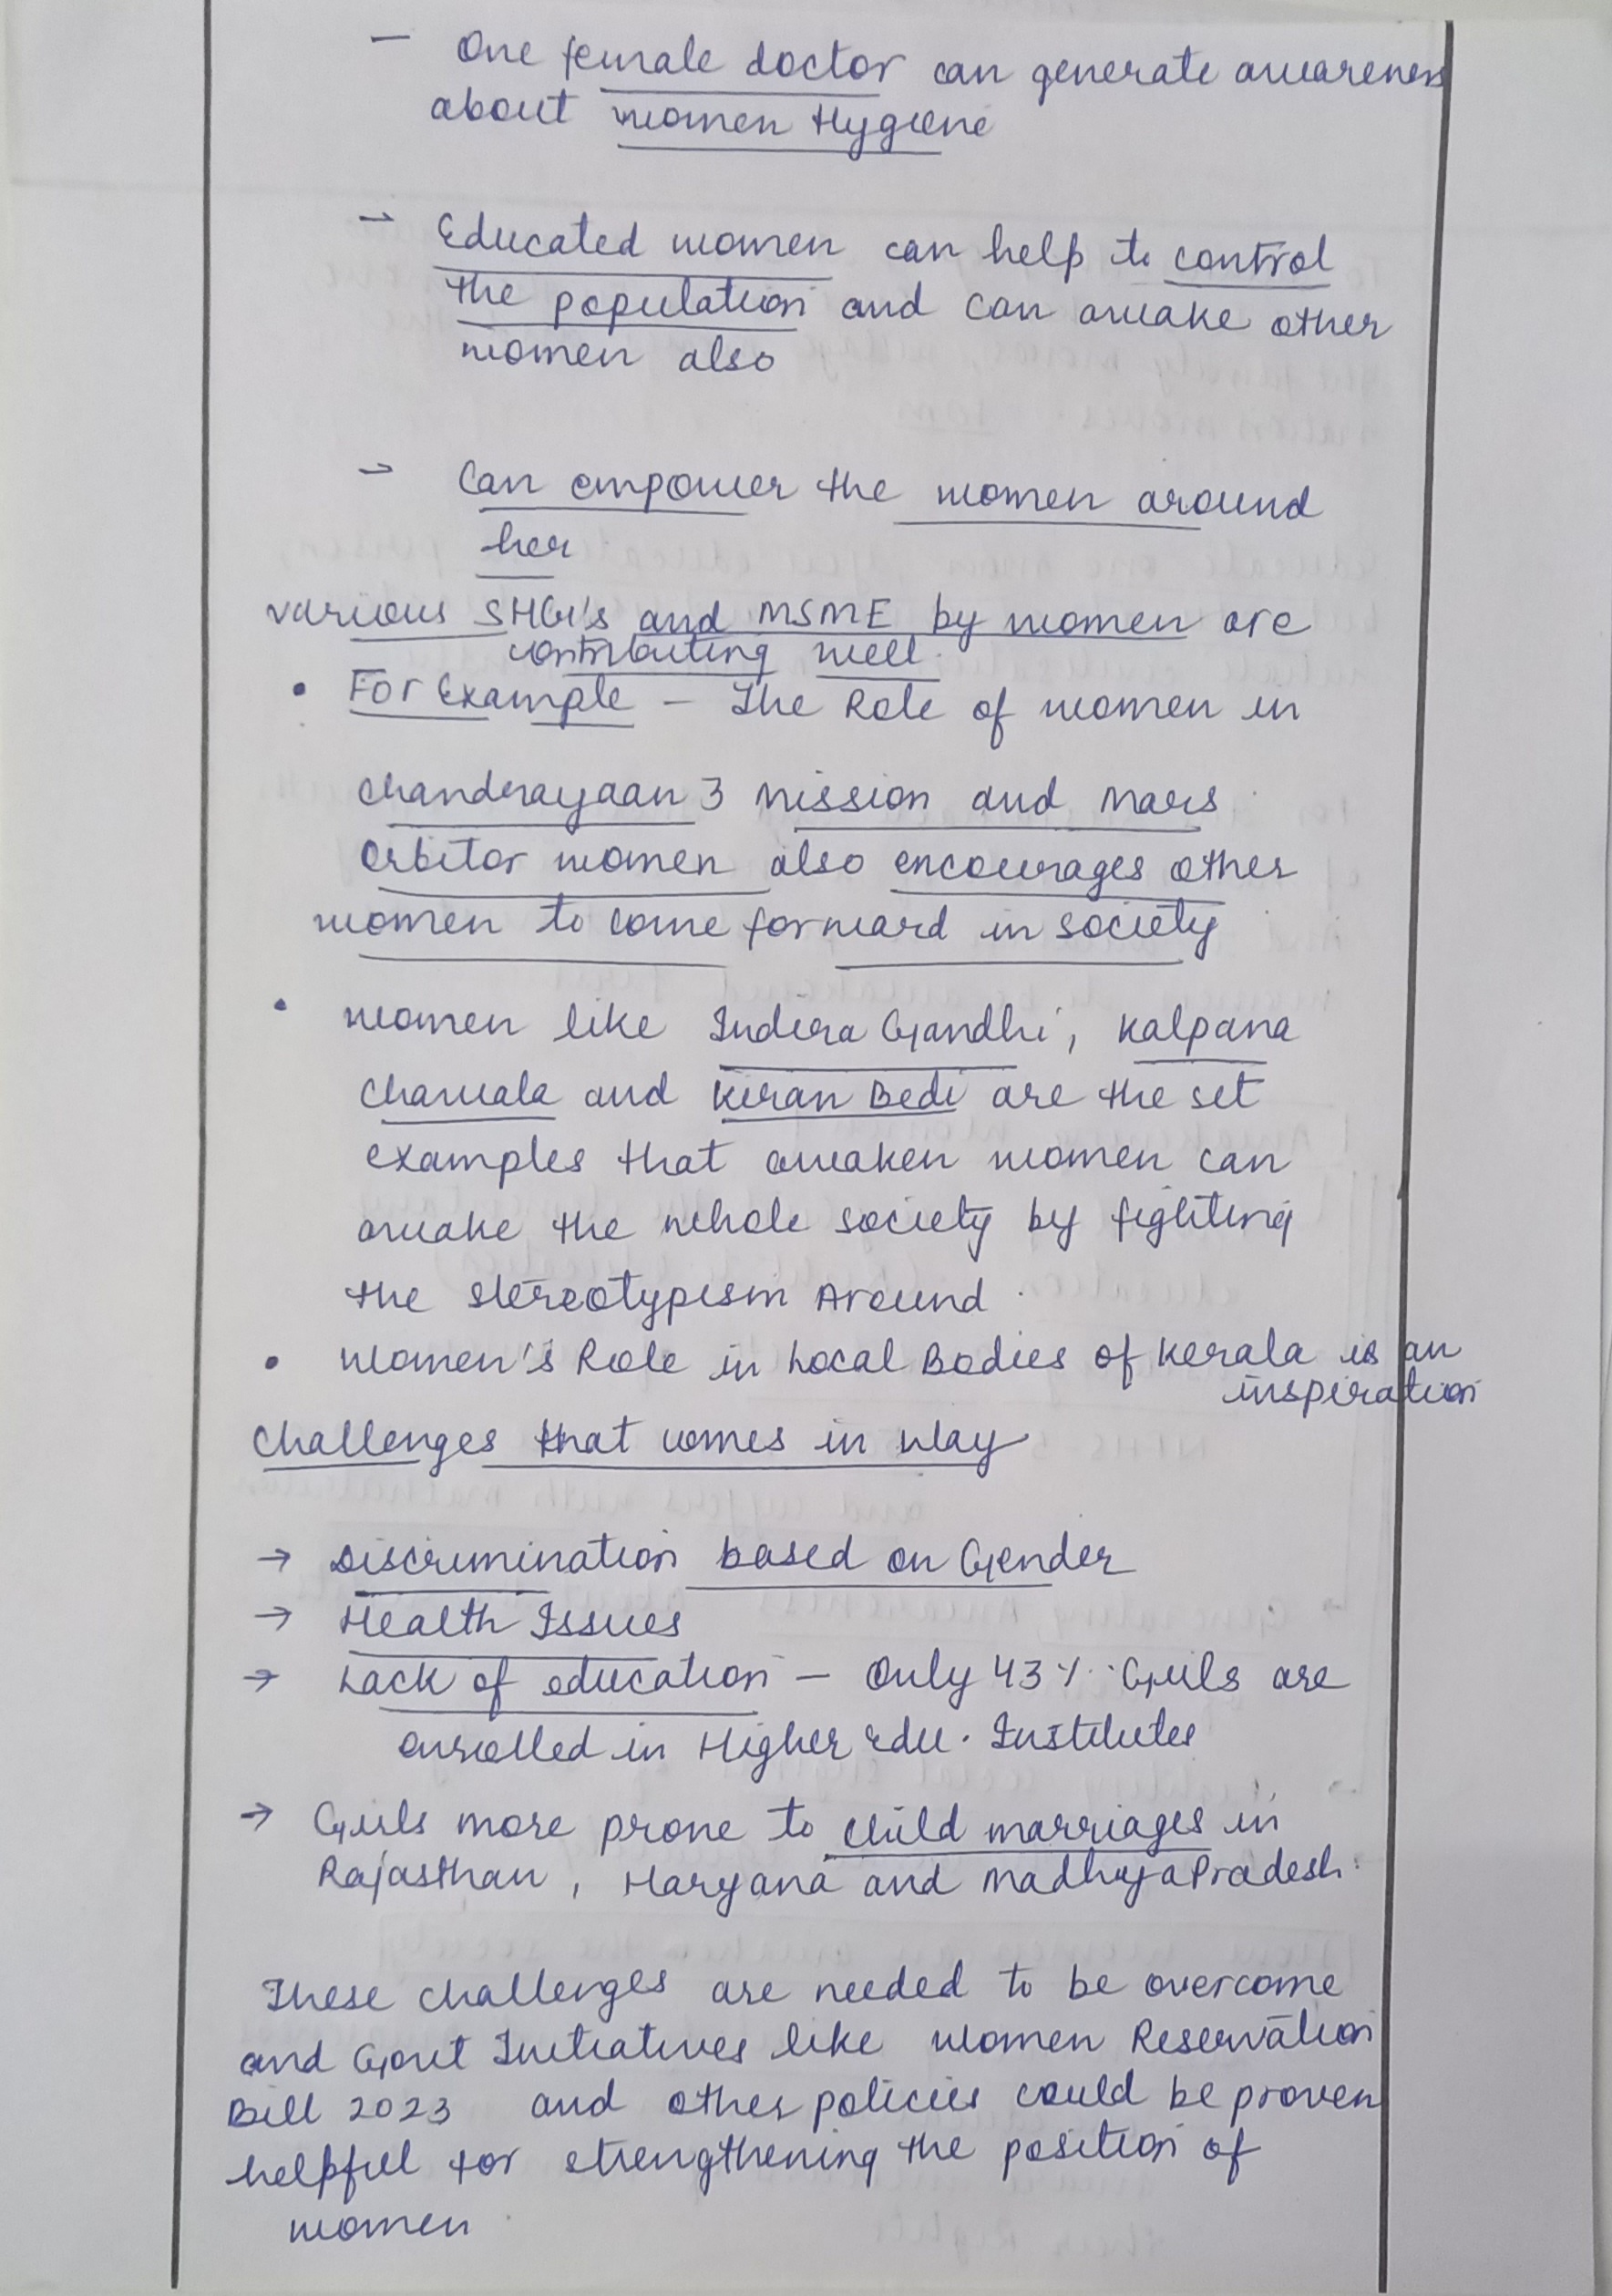 - One female doctor can generate awareness
about women Hygiene
→ Educated women can help to control
the population and can awake other
women also
→ Can empower the women around
her
various SHG's and MSME by women are
contributing well.
• For Example - The Role of women in
Chandrayaan 3 Mission and Mars
Orbitor women also encourages other
women to come forward in society
• women like Indira Gandhi, Kalpana
Chawala and Kiran Bedi are the set
examples that awaken women can
awake the whole society by fighting
the stereotypism Around.
• Women's Role in Local Bodies of Kerala is an
inspiration
Challenges that comes in way
→ Discrimination based on Gender
→ Health Issues
→ Lack of education - Only 43% Girls are
enrolled in Higher Edu. Institutes
→ Girls more prone to child marriages in
Rajasthan, Haryana and Madhya Pradesh.
These challenges are needed to be overcome
and Govt Initiatives like women Reservation
Bill 2023 and other policies could be proven
helpful for strengthening the position of
women.